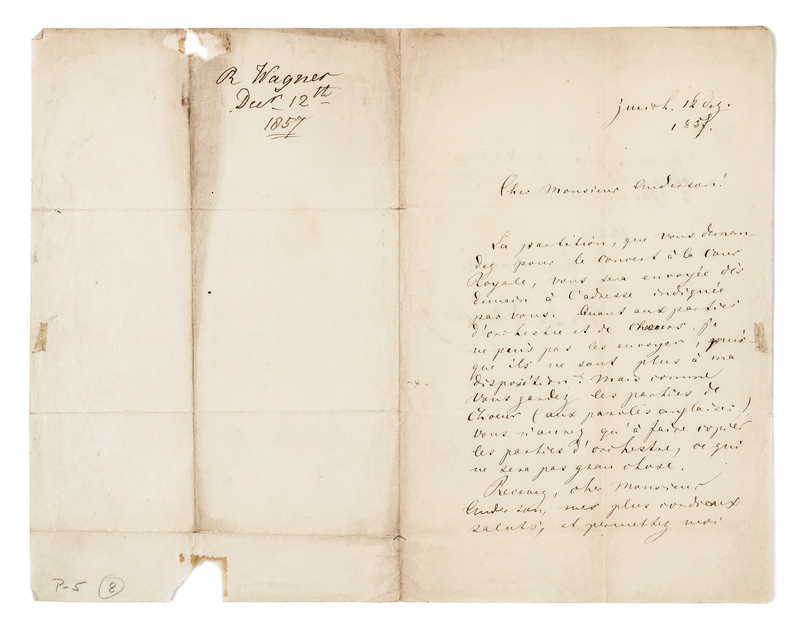 R Wagner
Decr. 12th
1857
Zurich. 12 Dez.
1857.
Cher Monsieur Anderson!
La partition, que vous deman-
dez pour le concert à la Cour
Royale, vous sera envoyée dès
demain à l'adresse indiquée
par vous. Quant aux parties
d'orchestre et de choeurs, je
ne peus pas les envoyer, puis-
que ils ne sont plus à ma
disposition. Mais comme
vous gardez les parties de
Choeur (aux paroles anglaises)
vous n'aurez qu'à faire copier
les parties d'orchestre, ce qui
ne sera pas gran chose.
Recevez, cher Monsieur
Anderson, mes plus cordiaux
saluts, et permettez moi
P-5 8